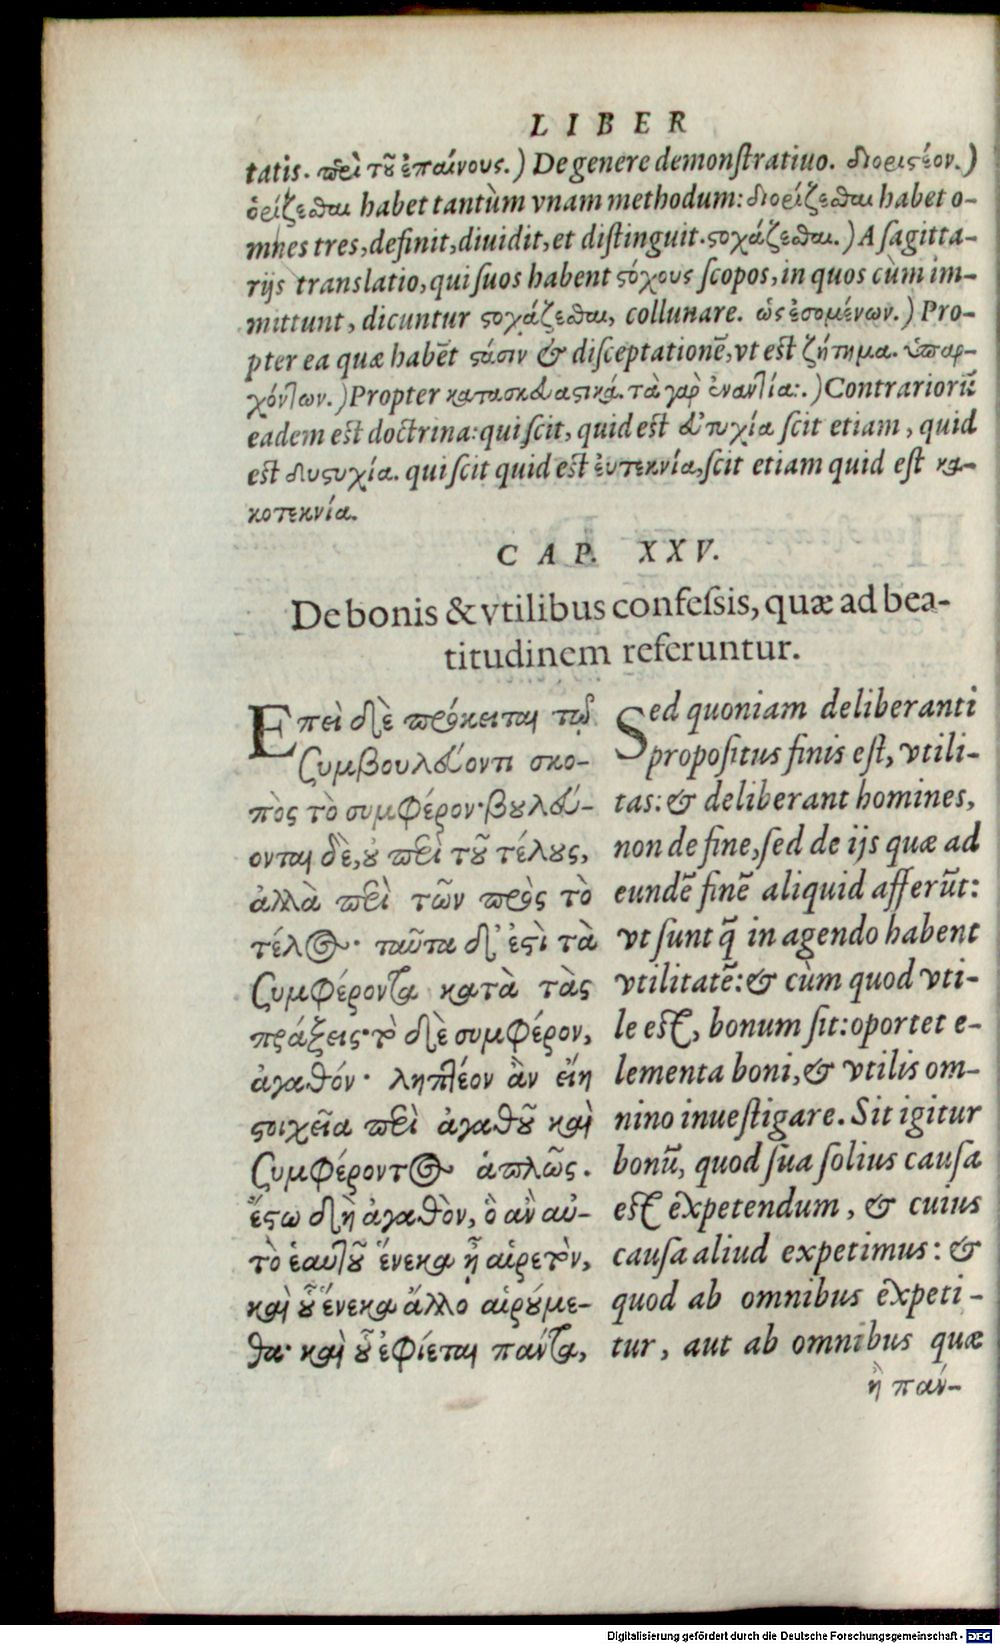 LIBER
tatis. περὶ τοῦ ἐπαίνους.) De genere demonſtratiuo. διοριστέον.)
ὁρίζεσθαι habet tantùm vnam methodum: διορίζεσθαι habet o-
mnes tres, definit, diuidit, et diſtinguit. στοχάζεσθαι.) A ſagitta-
rijs translatio, qui ſuos habent στόχους ſcopos, in quos cùm im-
mittunt, dicuntur στοχάζεσθαι, collunare. ὡς ἐσομένων.) Pro-
pter ea quæ habēt στάσιν & diſceptationē, vt est ζήτημα. ὑπαρ-
χόντων.) Propter κατασκευαστικά. τὰ γὰρ ἐναντία:.) Contrariorū
eadem est doctrina: qui ſcit, quid est εὐτυχία ſcit etiam, quid
est δυστυχία. qui ſcit quid est εὐτεκνία, ſcit etiam quid eſt κα-
κοτεκνία.
CAP. XXV.
De bonis & vtilibus confeſsis, quæ ad bea-
titudinem referuntur.
Επεὶ δὲ πρόκειται τῷ
συμβουλεύοντι σκο-
πὸς τὸ συμφέρον· βουλεύ-
ονται δὲ, οὐ περὶ τοῦ τέλους,
ἀλλὰ περὶ τῶν πρὸς τὸ
τέλος· ταῦτα δ' ἐστὶ τὰ
συμφέροντα κατὰ τὰς
πράξεις· τὸ δὲ συμφέρον,
ἀγαθόν· ληπτέον ἂν εἴη
στοιχεῖα περὶ ἀγαθοῦ καὶ
συμφέροντος ἁπλῶς.
ἔστω δὴ ἀγαθὸν, ὃ ἂν αὐ-
τὸ ἑαυτοῦ ἕνεκα ᾖ αἱρετὸν,
καὶ οὗ ἕνεκα ἄλλο αἱρούμε-
θα· καὶ οὗ ἐφίεται πάντα,
Sed quoniam deliberanti
propoſitus finis eſt, vtili-
tas: & deliberant homines,
non de fine, ſed de ijs quæ ad
eundē finē aliquid afferūt:
vt ſunt q̄ in agendo habent
vtilitatē: & cùm quod vti-
le est, bonum ſit: oportet e-
lementa boni, & vtilis om-
nino inueſtigare. Sit igitur
bonū, quod ſua ſolius cauſa
est expetendum, & cuius
cauſa aliud expetimus: &
quod ab omnibus expeti-
tur, aut ab omnibus quæ
ἢ παν-
Digitalisierung gefördert durch die Deutsche Forschungsgemeinschaft - DFG